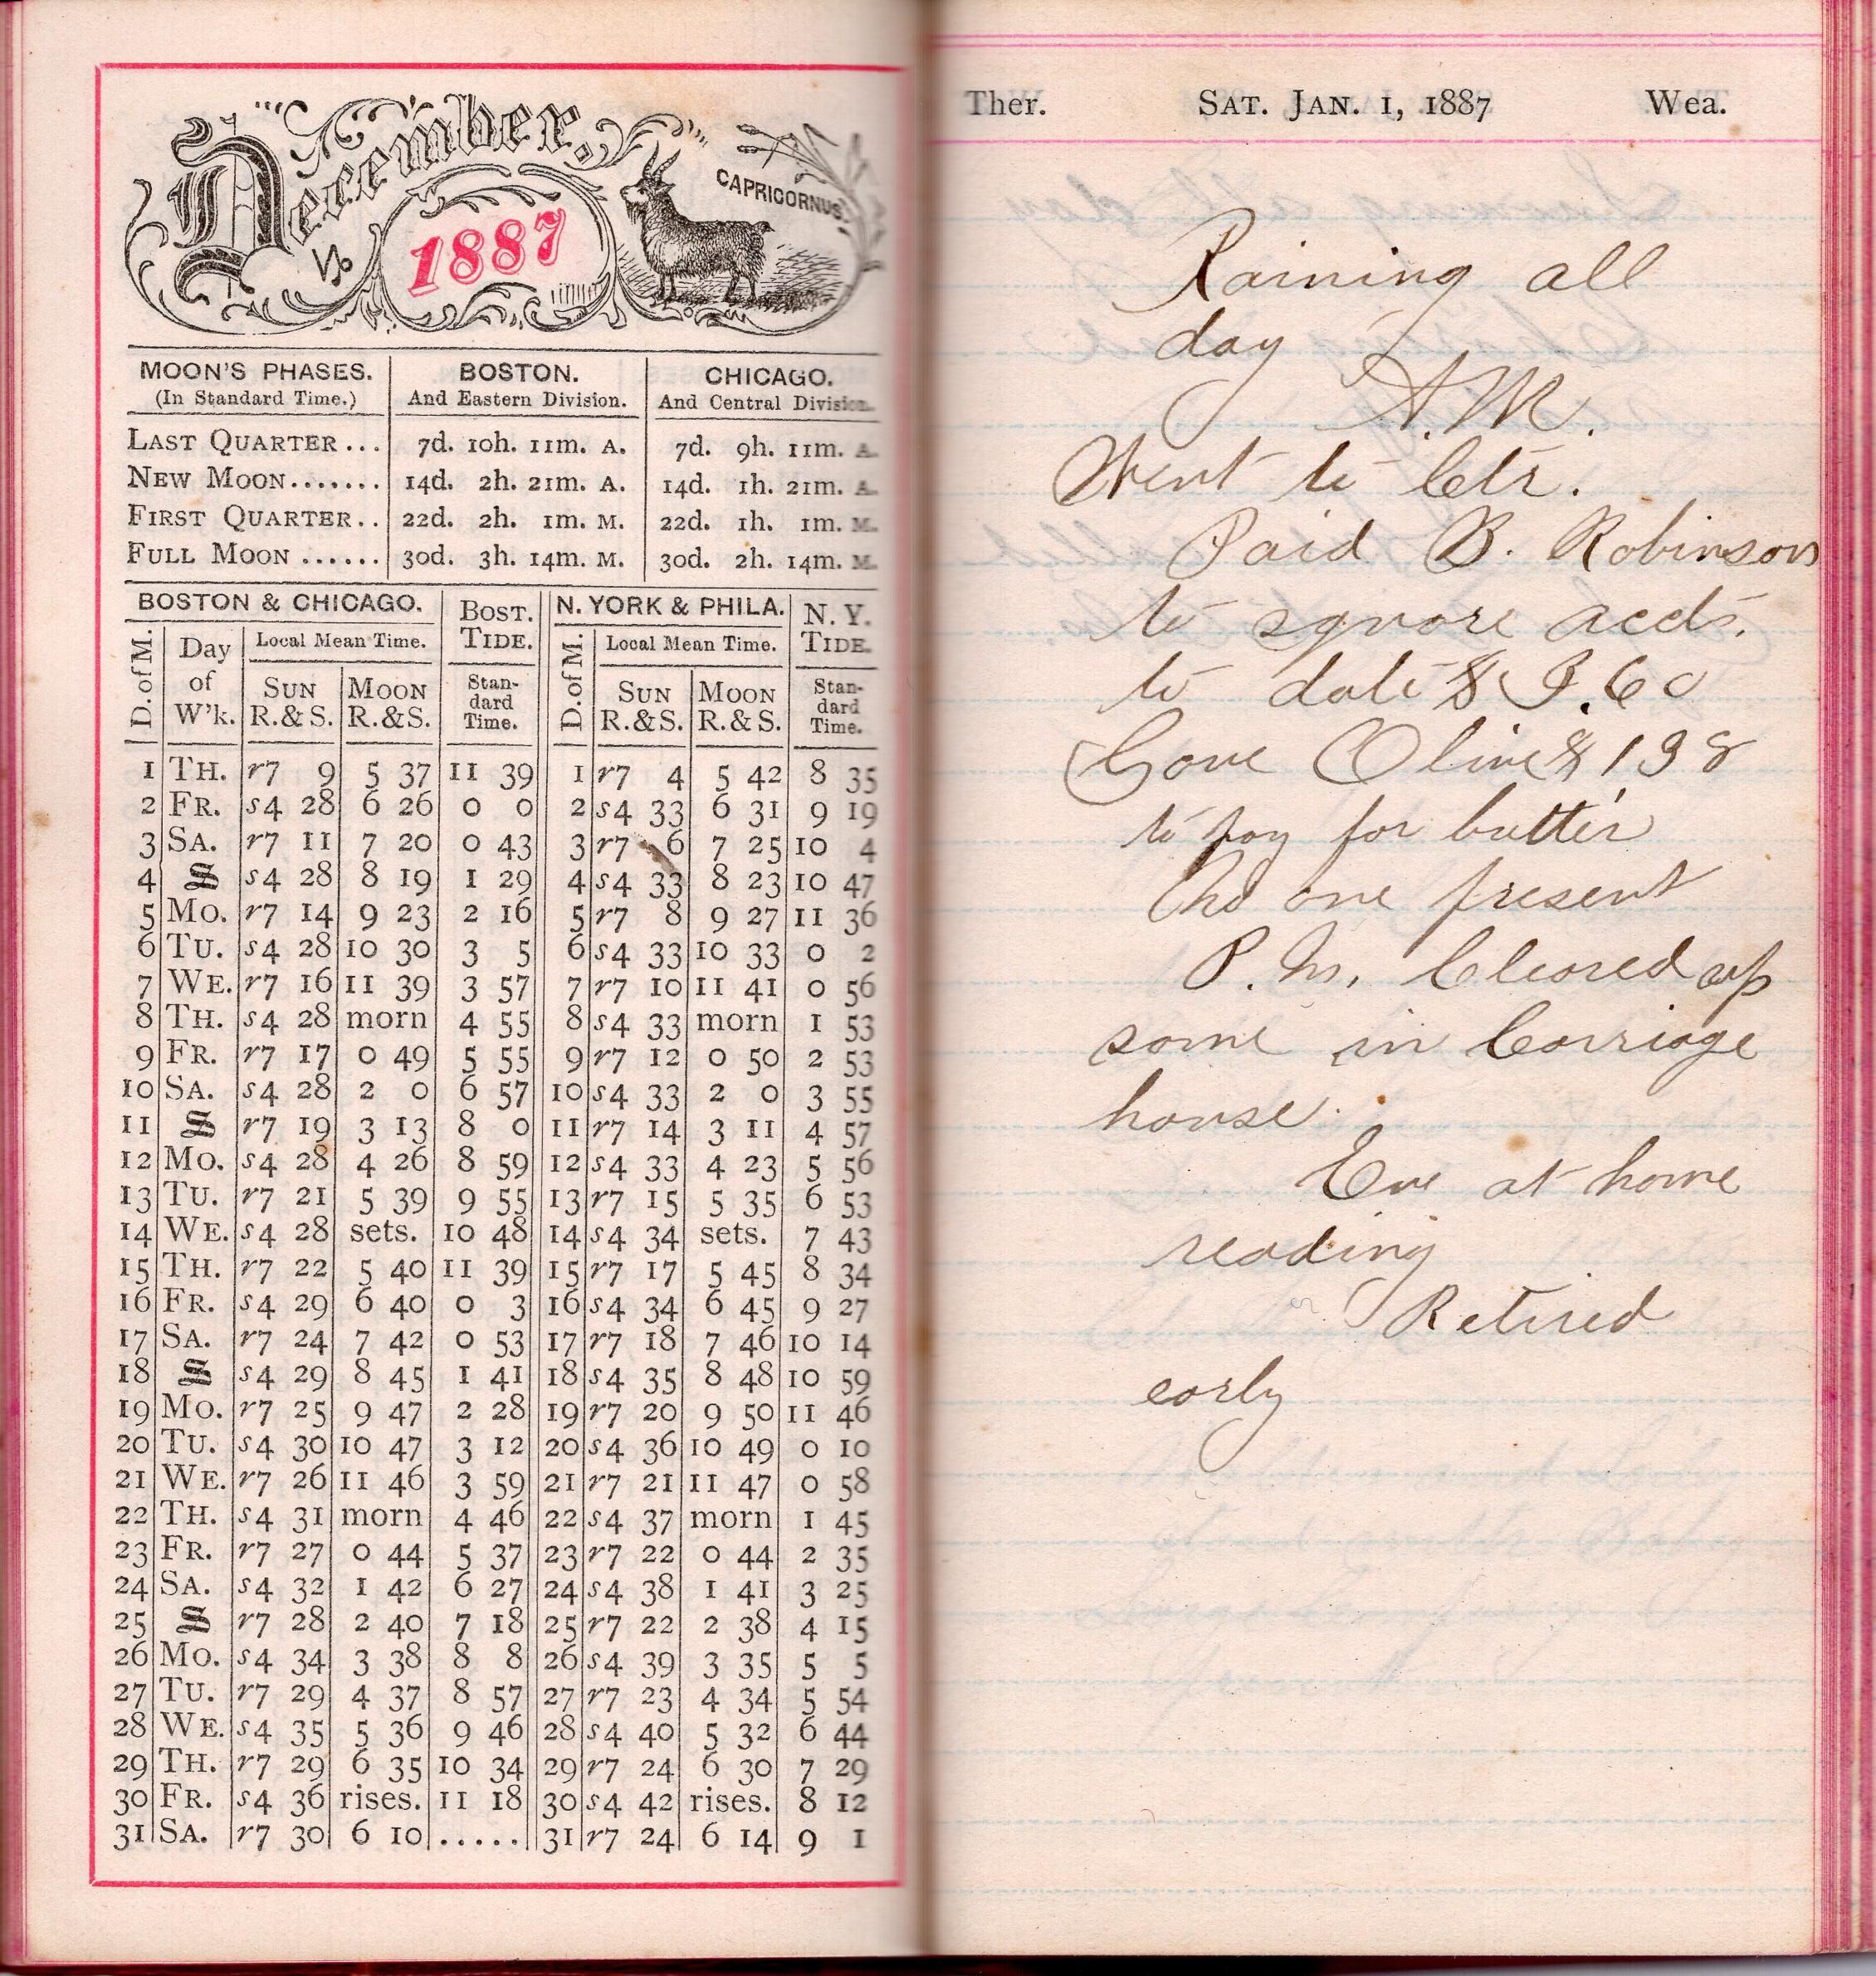 December,
1887
CAPRICORNUS.
MOON'S PHASES. BOSTON. CHICAGO.
(In Standard Time.) And Eastern Division. And Central Division.
LAST QUARTER ... 7d. 10h. 11m. A. 7d. 9h. 11m. A.
NEW MOON....... 14d. 2h. 21m. A. 14d. 1h. 21m. A.
FIRST QUARTER.. 22d. 2h. 1m. M. 22d. 1h. 1m. M.
FULL MOON ...... 30d. 3h. 14m. M. 30d. 2h. 14m. M.
BOSTON & CHICAGO. BOST. TIDE. N. YORK & PHILA. N. Y. TIDE.
D. of M. Day of W'k. Local Mean Time. Standard Time. D. of M. Local Mean Time. Standard Time.
SUN R.&S. MOON R.&S. SUN R.&S. MOON R.&S.
1 TH. r7 9 5 37 11 39 1 r7 4 5 42 8 35
2 FR. s4 28 6 26 0 0 2 s4 33 6 31 9 19
3 SA. r7 11 7 20 0 43 3 r7 6 7 25 10 4
4 S s4 28 8 19 1 29 4 s4 33 8 23 10 47
5 MO. r7 14 9 23 2 16 5 r7 8 9 27 11 36
6 TU. s4 28 10 30 3 5 6 s4 33 10 33 0 2
7 WE. r7 16 11 39 3 57 7 r7 10 11 41 0 56
8 TH. s4 28 morn 4 55 8 s4 33 morn 1 53
9 FR. r7 17 0 49 5 55 9 r7 12 0 50 2 53
10 SA. s4 28 2 0 6 57 10 s4 33 2 0 3 55
11 S r7 19 3 13 8 0 11 r7 14 3 11 4 57
12 MO. s4 28 4 26 8 59 12 s4 33 4 23 5 56
13 TU. r7 21 5 39 9 55 13 r7 15 5 35 6 53
14 WE. s4 28 sets. 10 48 14 s4 34 sets. 7 43
15 TH. r7 22 5 40 11 39 15 r7 17 5 45 8 34
16 FR. s4 29 6 40 0 3 16 s4 34 6 45 9 27
17 SA. r7 24 7 42 0 53 17 r7 18 7 46 10 14
18 S s4 29 8 45 1 41 18 s4 35 8 48 10 59
19 MO. r7 25 9 47 2 28 19 r7 20 9 50 11 46
20 TU. s4 30 10 47 3 12 20 s4 36 10 49 0 10
21 WE. r7 26 11 46 3 59 21 r7 21 11 47 0 58
22 TH. s4 31 morn 4 46 22 s4 37 morn 1 45
23 FR. r7 27 0 44 5 37 23 r7 22 0 44 2 35
24 SA. s4 32 1 42 6 27 24 s4 38 1 41 3 25
25 S r7 28 2 40 7 18 25 r7 22 2 38 4 15
26 MO. s4 34 3 38 8 8 26 s4 39 3 35 5 5
27 TU. r7 29 4 37 8 57 27 r7 23 4 34 5 54
28 WE. s4 35 5 36 9 46 28 s4 40 5 32 6 44
29 TH. r7 29 6 35 10 34 29 r7 24 6 30 7 29
30 FR. s4 36 rises. 11 18 30 s4 42 rises. 8 12
31 SA. r7 30 6 10 ..... 31 r7 24 6 14 9 1
Ther. SAT. JAN. 1, 1887 Wea.
Raining all
day A.M.
Went to Ctr.
Paid B. Robinson
to square accts.
to date $ 9.60
Gave Olive $ 198
to pay for butter
No one present
P.M. Cleared up
some in Carriage
house.
Eve at home
reading
Retired
early